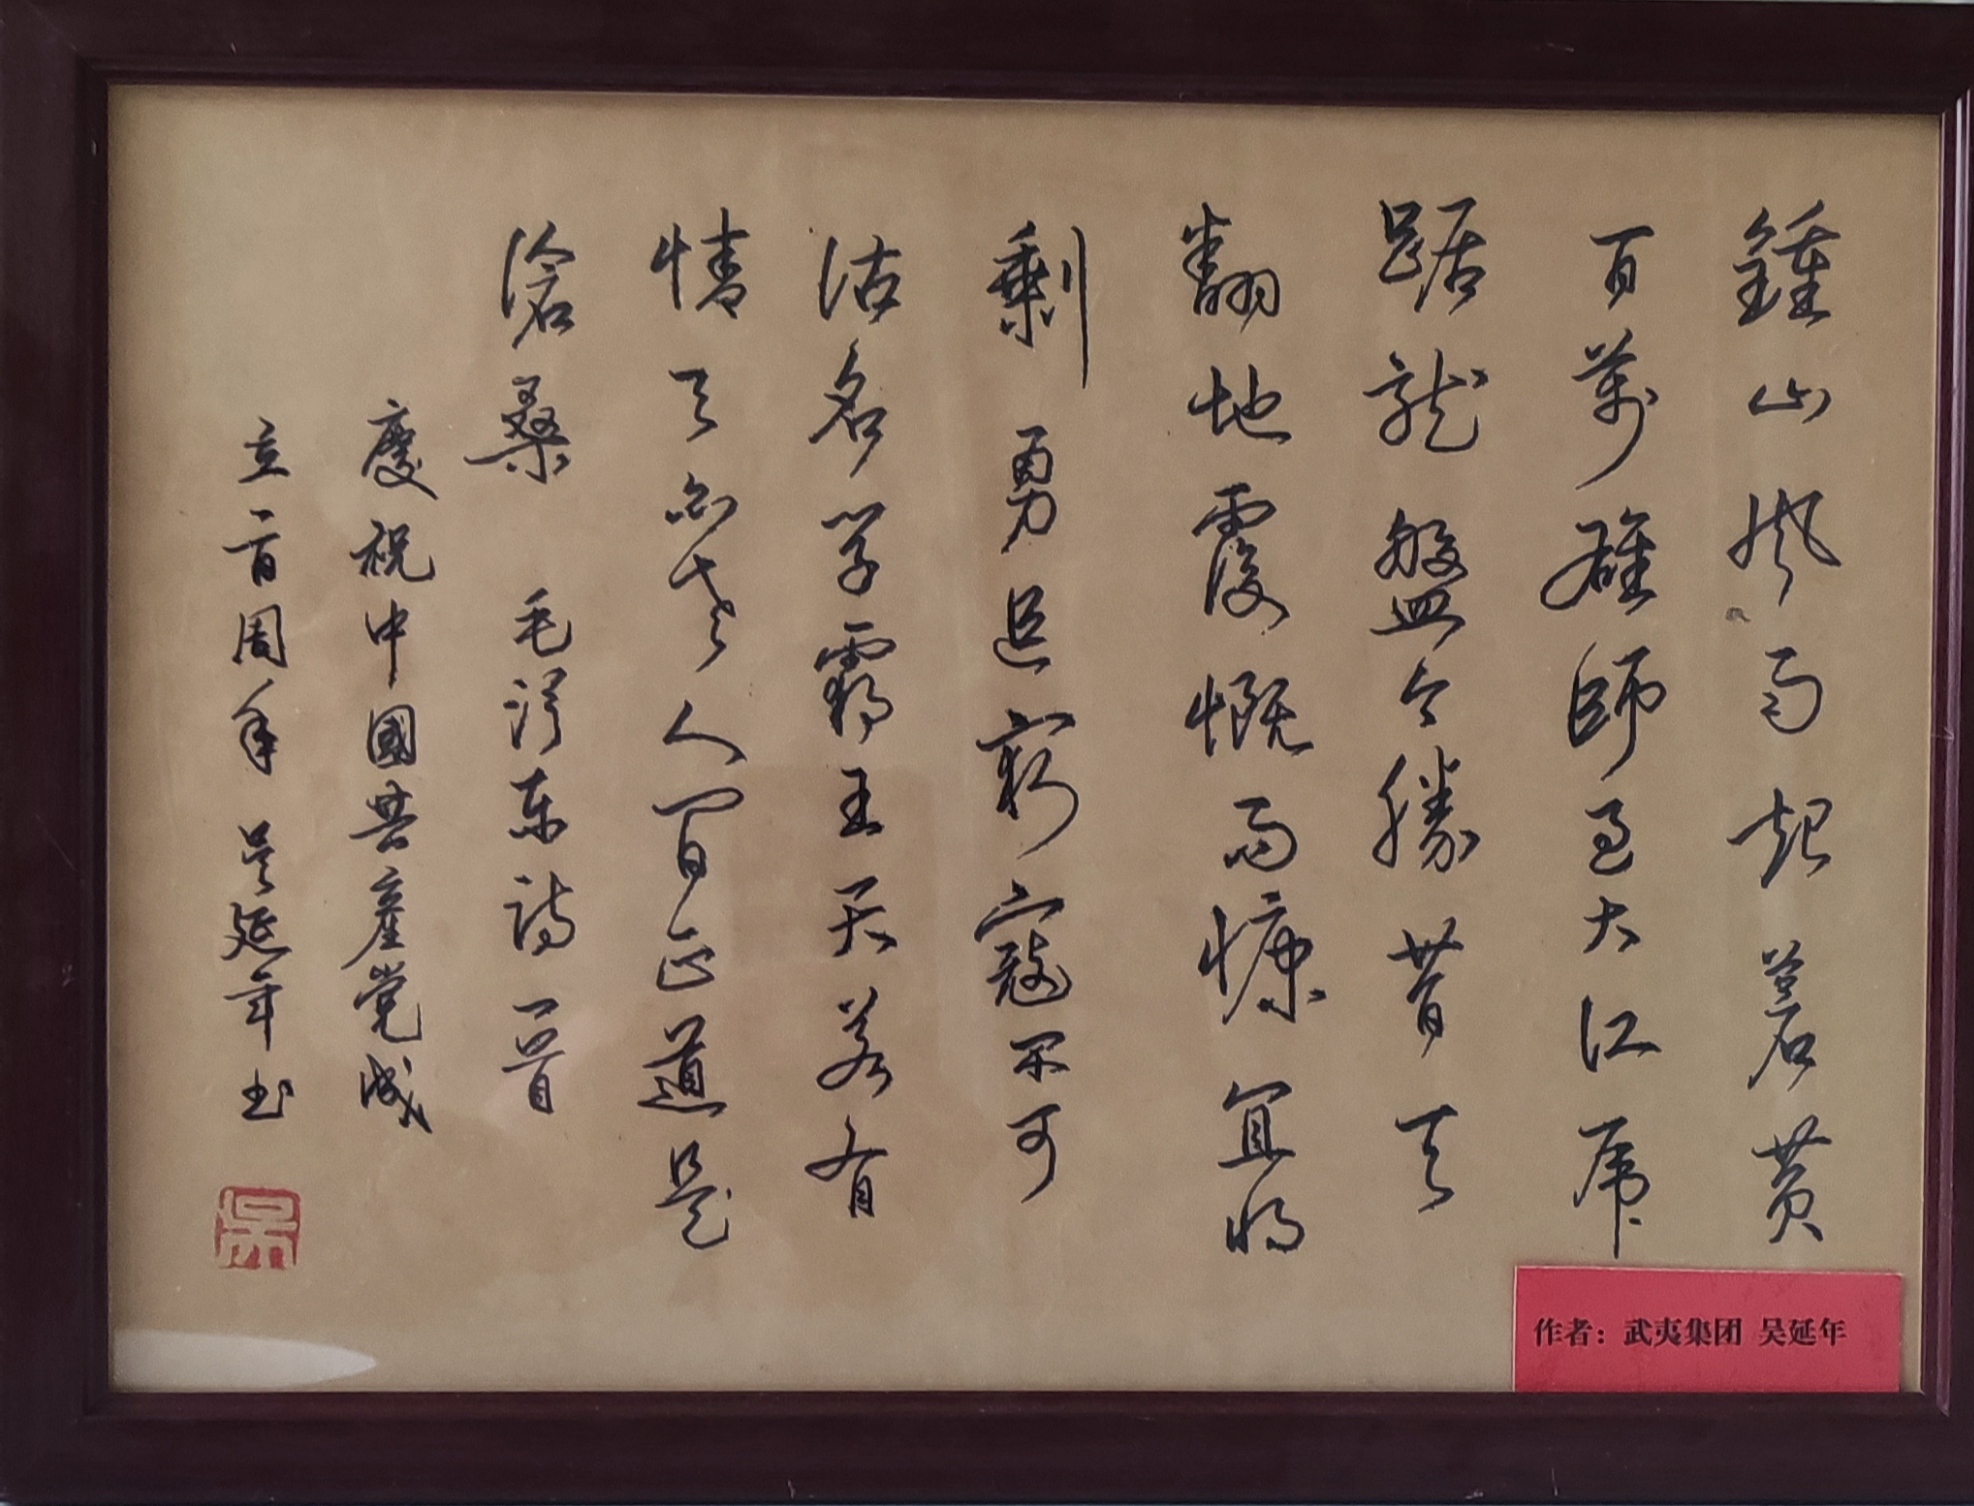 鍾山風雨起蒼黄
百萬雄師过大江虎
踞龍盤今勝昔天
翻地覆慨而慷宜将
剩勇追窮寇不可
沽名学霸王天若有
情天亦老人间正道是
滄桑 毛澤东詩一首
慶祝中國共產党成
立一百周年 吴延年书
吴
作者：武夷集团 吴延年